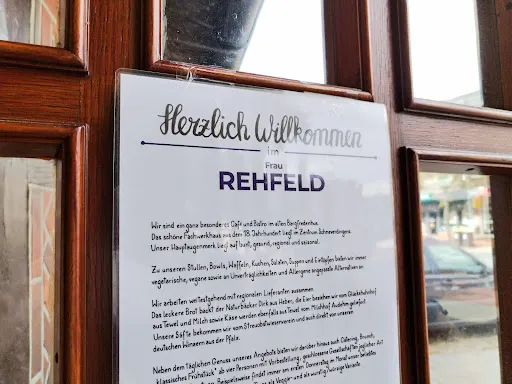 Herzlich Willkommen
im
Frau
REHFELD
Wir sind ein ganz besonderes Café und Bistro im alten Bargfredenhus.
Das schöne Fachwerkhaus aus dem 18. Jahrhundert liegt im Zentrum Schneverdingens.
Unser Hauptaugenmerk liegt auf bunt, gesund, regional und saisonal.
Zu unseren Stullen, Bowls, Waffeln, Kuchen, Salaten, Suppen und Eintöpfen bieten wir immer
vegetarische, vegane sowie an Unverträglichkeiten und Allergene angepasste Alternativen an.
Wir arbeiten weitestgehend mit regionalen Lieferanten zusammen.
Das leckere Brot backt der Naturbäcker Dirk aus Heber, die Eier beziehen wir vom Glückskuhnhof
aus Tewel und Milch sowie Käse werden ebenfalls aus Tewel vom Milchhof Audehm geliefert.
Unsere Säfte bekommen wir vom Streuobstwiesenverein und auch direkt von unseren
deutschen Winzern aus der Pfalz.
Neben dem täglichen Genuss unseres Angebots bieten wir darüber hinaus auch Catering, Brunch,
klassisches Frühstück* ab vier Personen mit Vorbestellung, geschlossene Gesellschaften jeglicher Art
Beispielsweise findet immer am ersten Donnerstag im Monat unser beliebtes
als Veggie- und als wurstig/würzige Variante